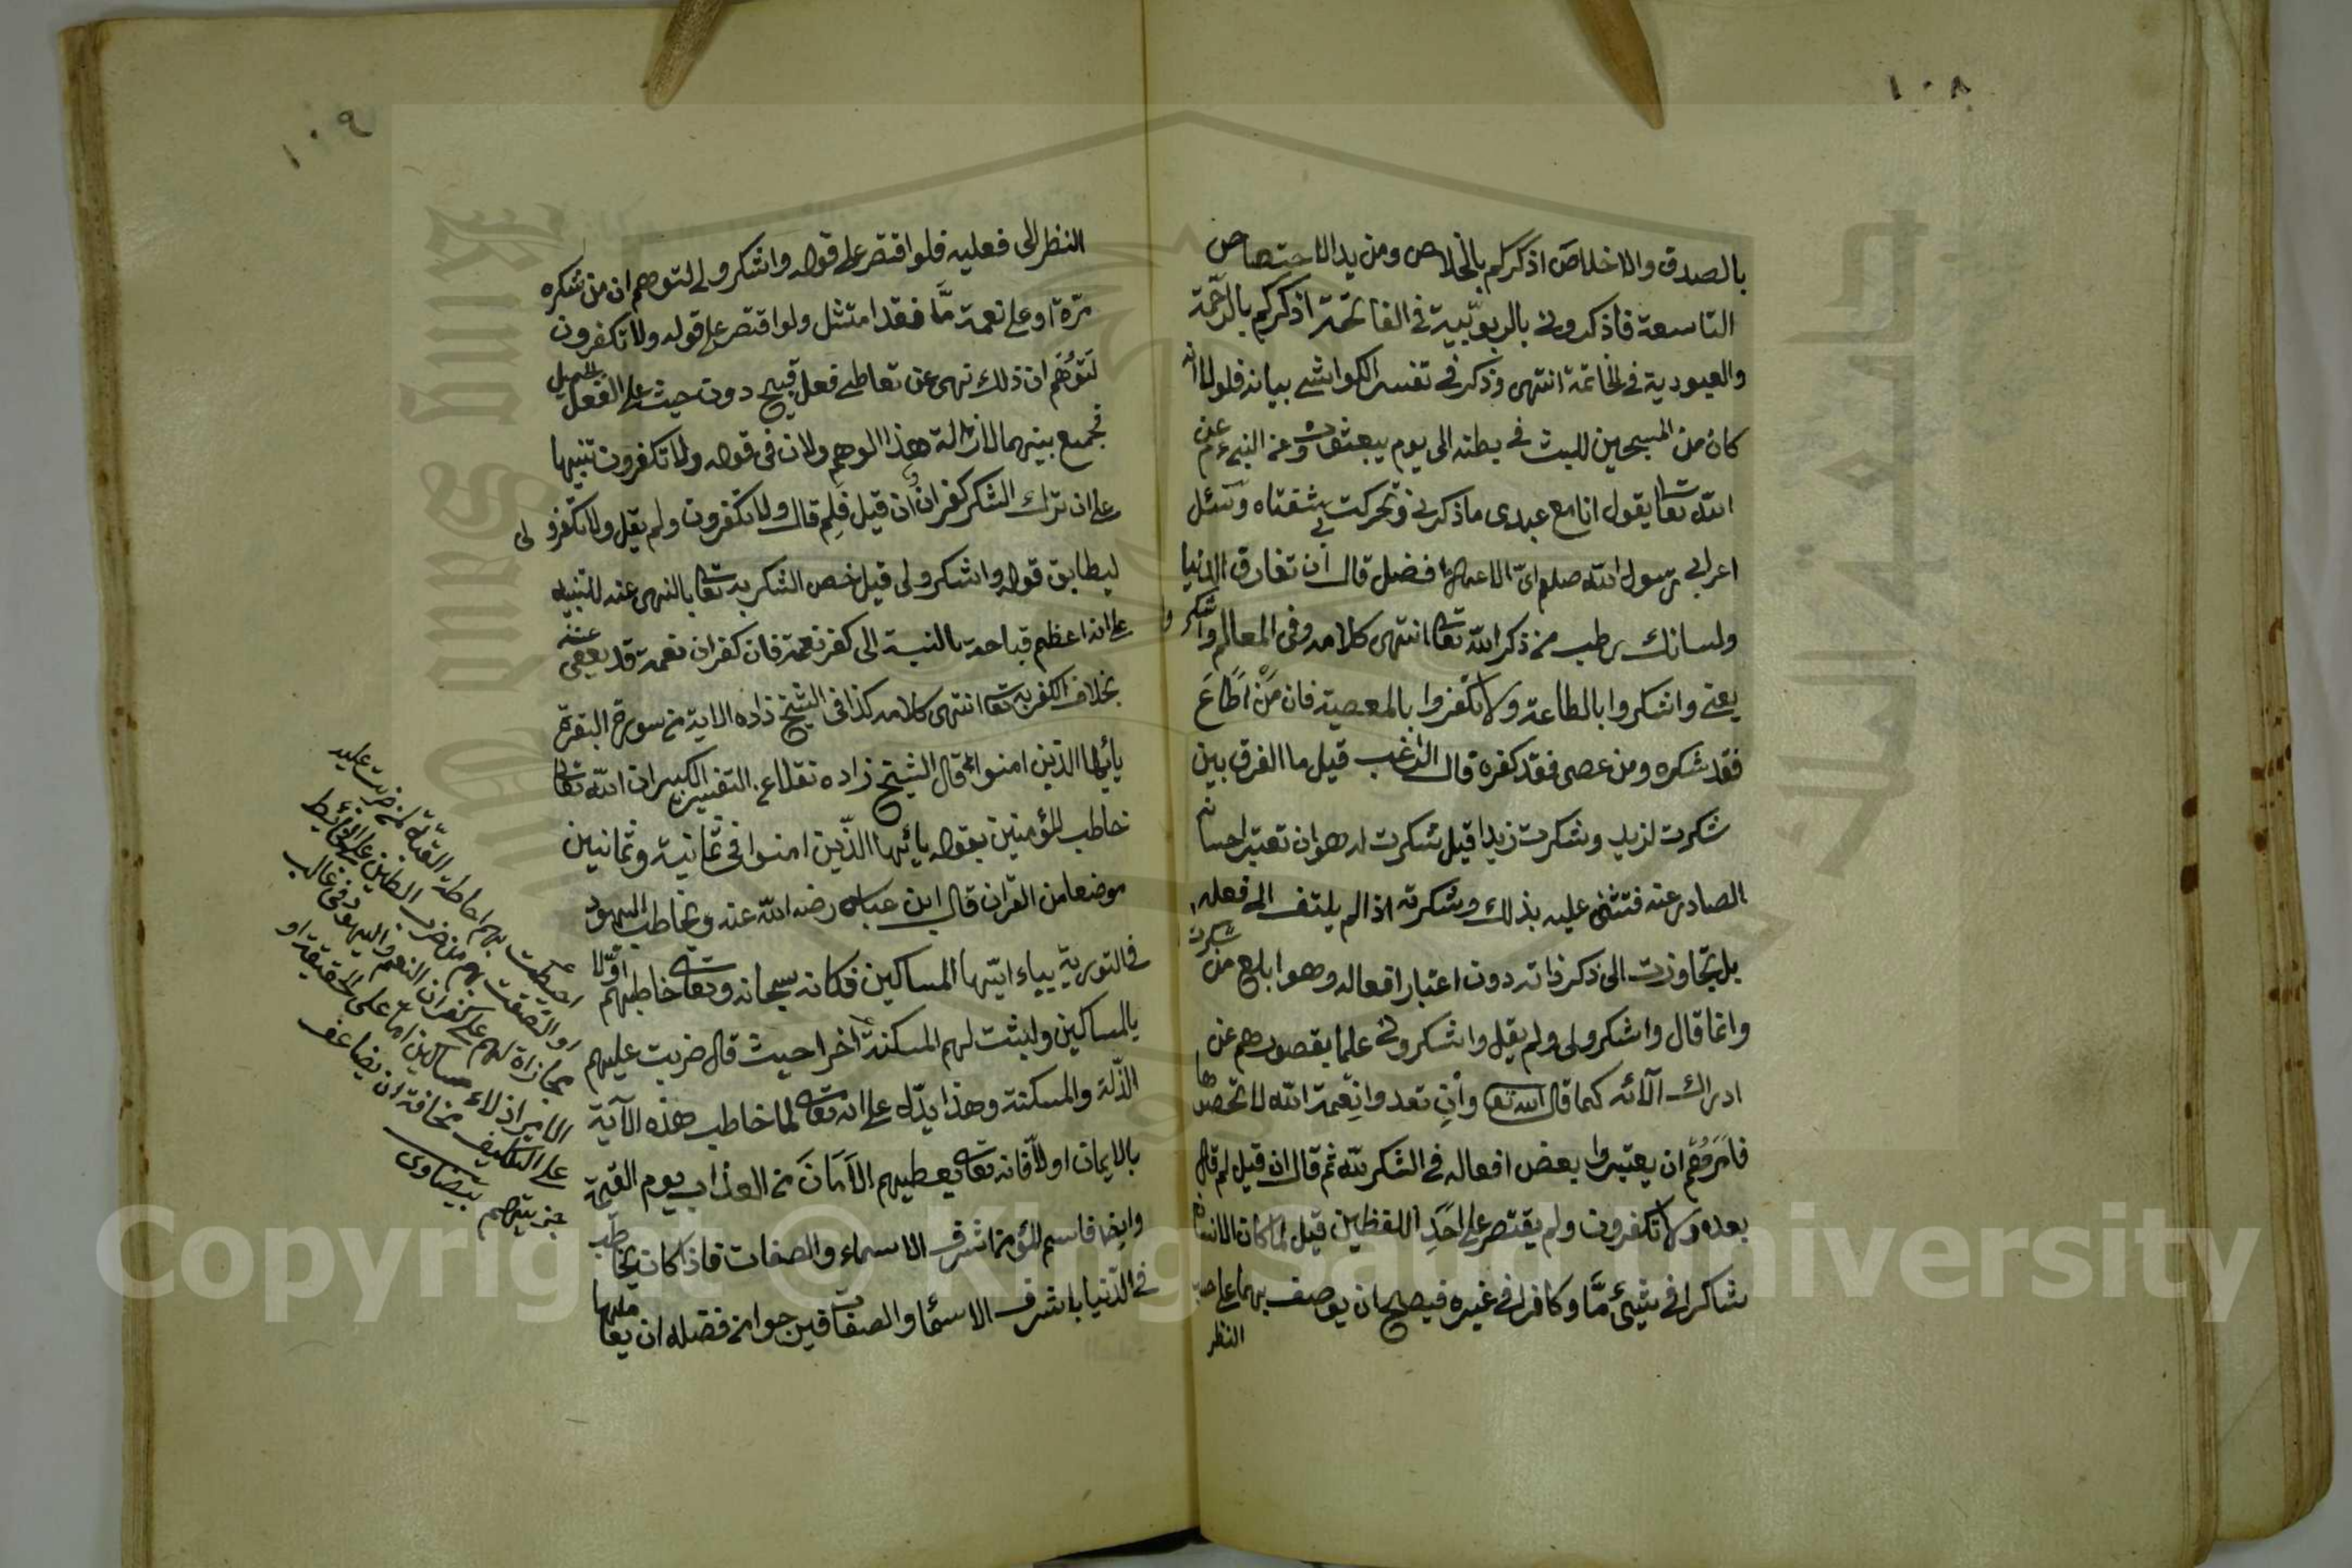 ١٠٨
بالصدق والاخلاص اذكركم بالخلاص ومزيد الاختصاص
التاسعة فاذكروني بالربوبية في الفاتحة اذكركم بالرحمة
والعبودية في الخاتمة انتهى وذكر في تفسير الكواشي بيانه فلولا انه
كان من المسبحين للبث في بطنه الى يوم يبعثون وعن النبي عم عن
الله تعا يقول انا مع عبدي ما ذكرني وتحركت بي شفتاه وسئل
اعرابي رسول الله صلعم اي الاعمال افضل قال ان تفارق الدنيا
ولسانك رطب من ذكر الله تعا انتهى كلامه وفي المعالم واشكروا
يعني واشكروا بالطاعة ولا تكفروا بالمعصية فان مَنْ اَطَاعَ
فقد شكره ومن عصى فقد كفره قال الراغب قيل ما الفرق بين
شكرت لزيد وشكرت زيدا قيل شكرت له هو ان تعتبر احسانه
الصادر عنه فتثني عليه بذلك وشكرته اذا لم يلتف الى فعله
بل تجاوزت الى ذكر ذاته دون اعتبار افعاله وهو ابلغ من شكرت
وانما قال واشكروا لي ولم يقل واشكروني علما بقصورهم عن
ادراك آلائه كما قال الله تعا وَاِنْ تعدوا نِعْمة الله لا تحصوها
فَاَمَرَهُمْ ان يعتبروا بعض افعاله في الشكر لله ثم قال ان قيل لم قال
بعده ولا تكفرون ولم يقتصر على اَحَدِ اللفظين قيل لما كان الانسان
شاكرا في شيئ مَّا وكافرا في غيره فيصح ان يوصف بهما على حسب
النظر
١٠٩
النظر الى فعليه فلو اقتصر على قوله واشكروا لي لتوهم ان من شكره
مرّة او على نعمة مَّا فقد امتثل ولو اقتصر على قوله ولا تكفرون
لَتُوُهِّم ان ذلك نهى عن تعاطي فعل قبيح دون حيث على الفعل الجميل
فجمع بينهما لازالة هذا الوهم ولان في قوله ولا تكفرون تنبيها
على ان ترك الشكر كفران فان قيل فلِم قال ولا تكفرون ولم يقل ولا تكفروا لي
ليطابق قوله واشكروا لي قيل خص الشكر به تعا بالنهى عنه للتنبيه
على انه اعظم قباحة بالنسبة الى كفر نعمته فان كفران نعمة قد يعفى عنه
بخلاف الكفر به تعا انتهى كلامه كذا في الشيخ زاده الاية من سورة البقرة
يأيها الذين امنوا قال الشيخ زاده نقلا عن التفسير الكبير ان الله تعا
خاطب المؤمنين بقوله يأيّها الذّين امنوا في ثمانية وثمانين
موضعا من القران قال ابن عباس رضه الله عنه ويخاطب اليهود
في التورية بياء ايّتها المساكين فكانه سبحانه وتعا خاطبهم اوّلا
بالمساكين واثبت لهم المسكنة اخرا حيث قال ضربت عليهم
الذّلة والمسكنة وهذا يدّل على انه تعا لما خاطب هذه الآية
بالايمان اولاً فانه تعا يعطيهم الاَمَانَ من العذاب يوم القيمة
وايضا فاسم المؤمن اشرف الاسماء والصفات فاذا كان يخاطب
في الدّنيا باشرف الاسماء والصفات فنرجوا من فضله ان يعاملها
احيطت بهم احاطة القبّة لمن ضربت عليه
والتصقت بهم من ضرب الطين على الحائط
مجازاة لهم على كفران النعم واليهود في غالب
الامر اذلاء مساكين اما على الحقيقة او
على التكليف مخافة ان يضاعف
جزيتهم بيضاوى
Copyright © King Saud University